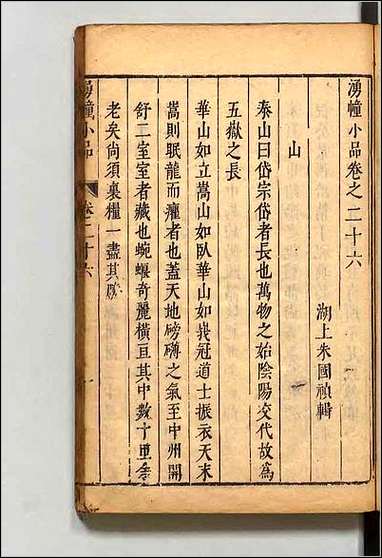 湧幢小品卷之二十六
湖上朱國禎輯
山
泰山曰岱宗岱者長也萬物之始陰陽交代故為
五嶽之長
華山如立嵩山如臥華山如峩冠道士振衣天末
嵩則眠龍而癯者也蓋天地磅礴之氣至中州開
舒二室室者藏也蜿蟺奇麗橫亘其中數十里余
老矣尚須裹糧一盡其勝
湧幢小品 卷二十六 一